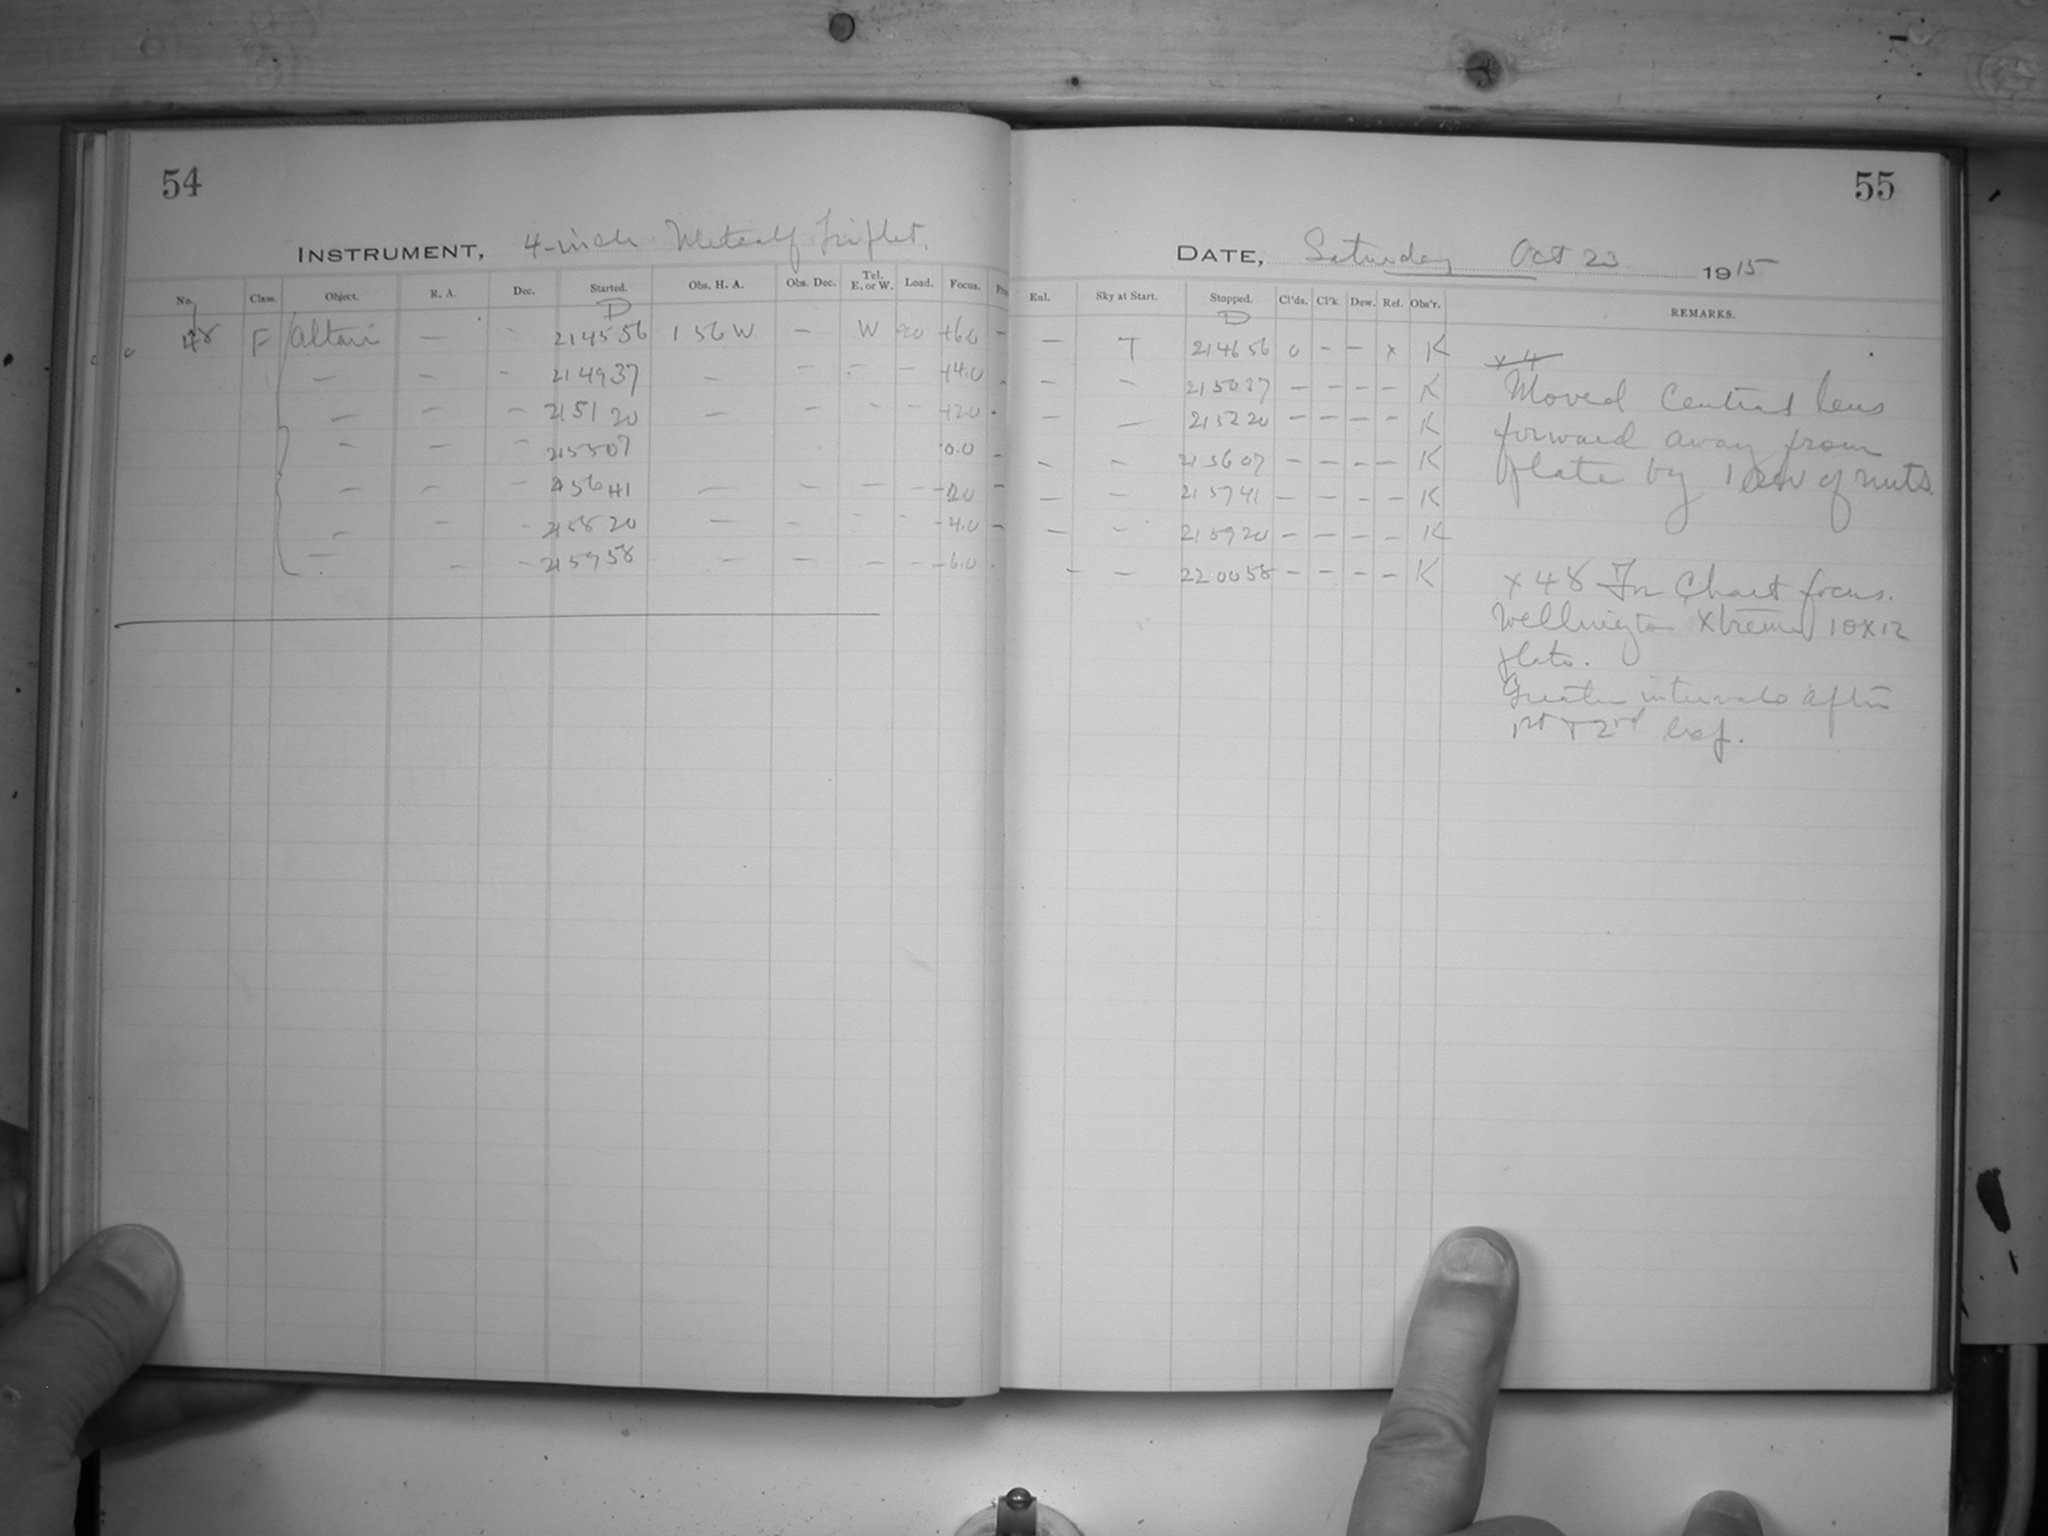 54
INSTRUMENT, 4-inch Metcalf Triplet.
No. Class. Object. R. A. Dec. Started. Obs. H. A. Obs. Dec. Tel. E. or W. Load. Focus.
D
48 F Altair — - 21 45 56 1 56 W — W +6.0 -
— — - 21 49 37 — — — — +4.0 -
— — — 21 51 20 — — - - +2.0 -
— — — 21 55 07 0.0 -
— — — 21 56 41 — — — — -2.0 —
— — - 21 58 20 — — - - -4.0 —
— — — 21 59 58 — — — — -6.0 -
55
DATE, Saturday Oct 23 1915
Enl. Sky at Start. Stopped. Cl'ds. Cl'k. Dew. Ref. Obs'r. REMARKS.
D
— T 21 46 56 0 - — x K
— — 21 50 37 — — — — K
— — 21 52 20 — — — — K
— — 21 56 07 — — — — K
— — 21 57 41 — — — — K
— — 21 59 20 — — — — K
— — 22 00 58 — — — — K
x 4
Moved Central lens
forward away from
plate by 1 rev of nuts.
x 48 For Chart focus.
Wellington Xtreme 10x12
plate.
Greater intervals after
1st & 2nd exp.